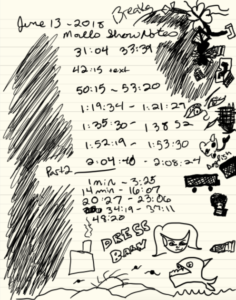 June 13 - 2018
Mallo Show Notes
31:04 33:39
42:15 next
50:15 - 53:20
1:19:34 - 1:21:27
1:35:30 - 1 38 52
1:52:19 - 1:53:30
Part 2
2:04:40 - 2:08:24
1 min - 3:25
14 min - 16:07
20:27 - 23:06
34:19 - 37:11
49:20
DRESS
BARN